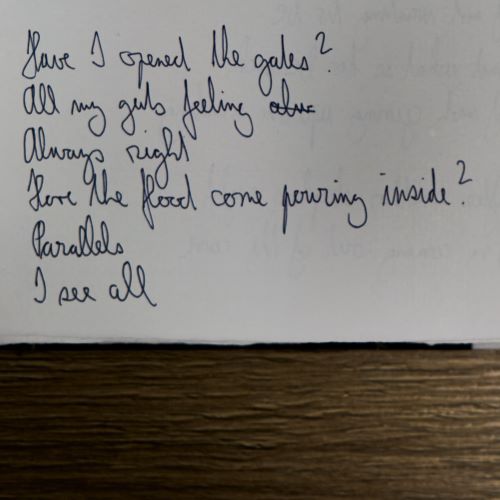 Have I opened the gates?
All my guts feeling
Always right
Have the flood come pouring inside?
Parallels
I see all